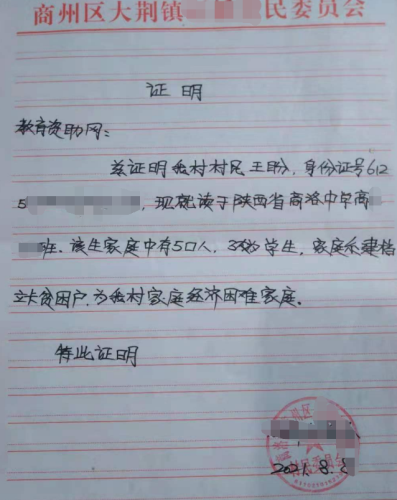 商州区大荆镇 民委员会
证明
教育资助网:
兹证明我村村民王盼,身份证号612
5 ,现就读于陕西省商洛中学高
班。该生家庭中有5口人,3名学生,家庭系建档
立卡贫困户,为我村家庭经济困难家庭。
特此证明
村民委员会
2021.8.2